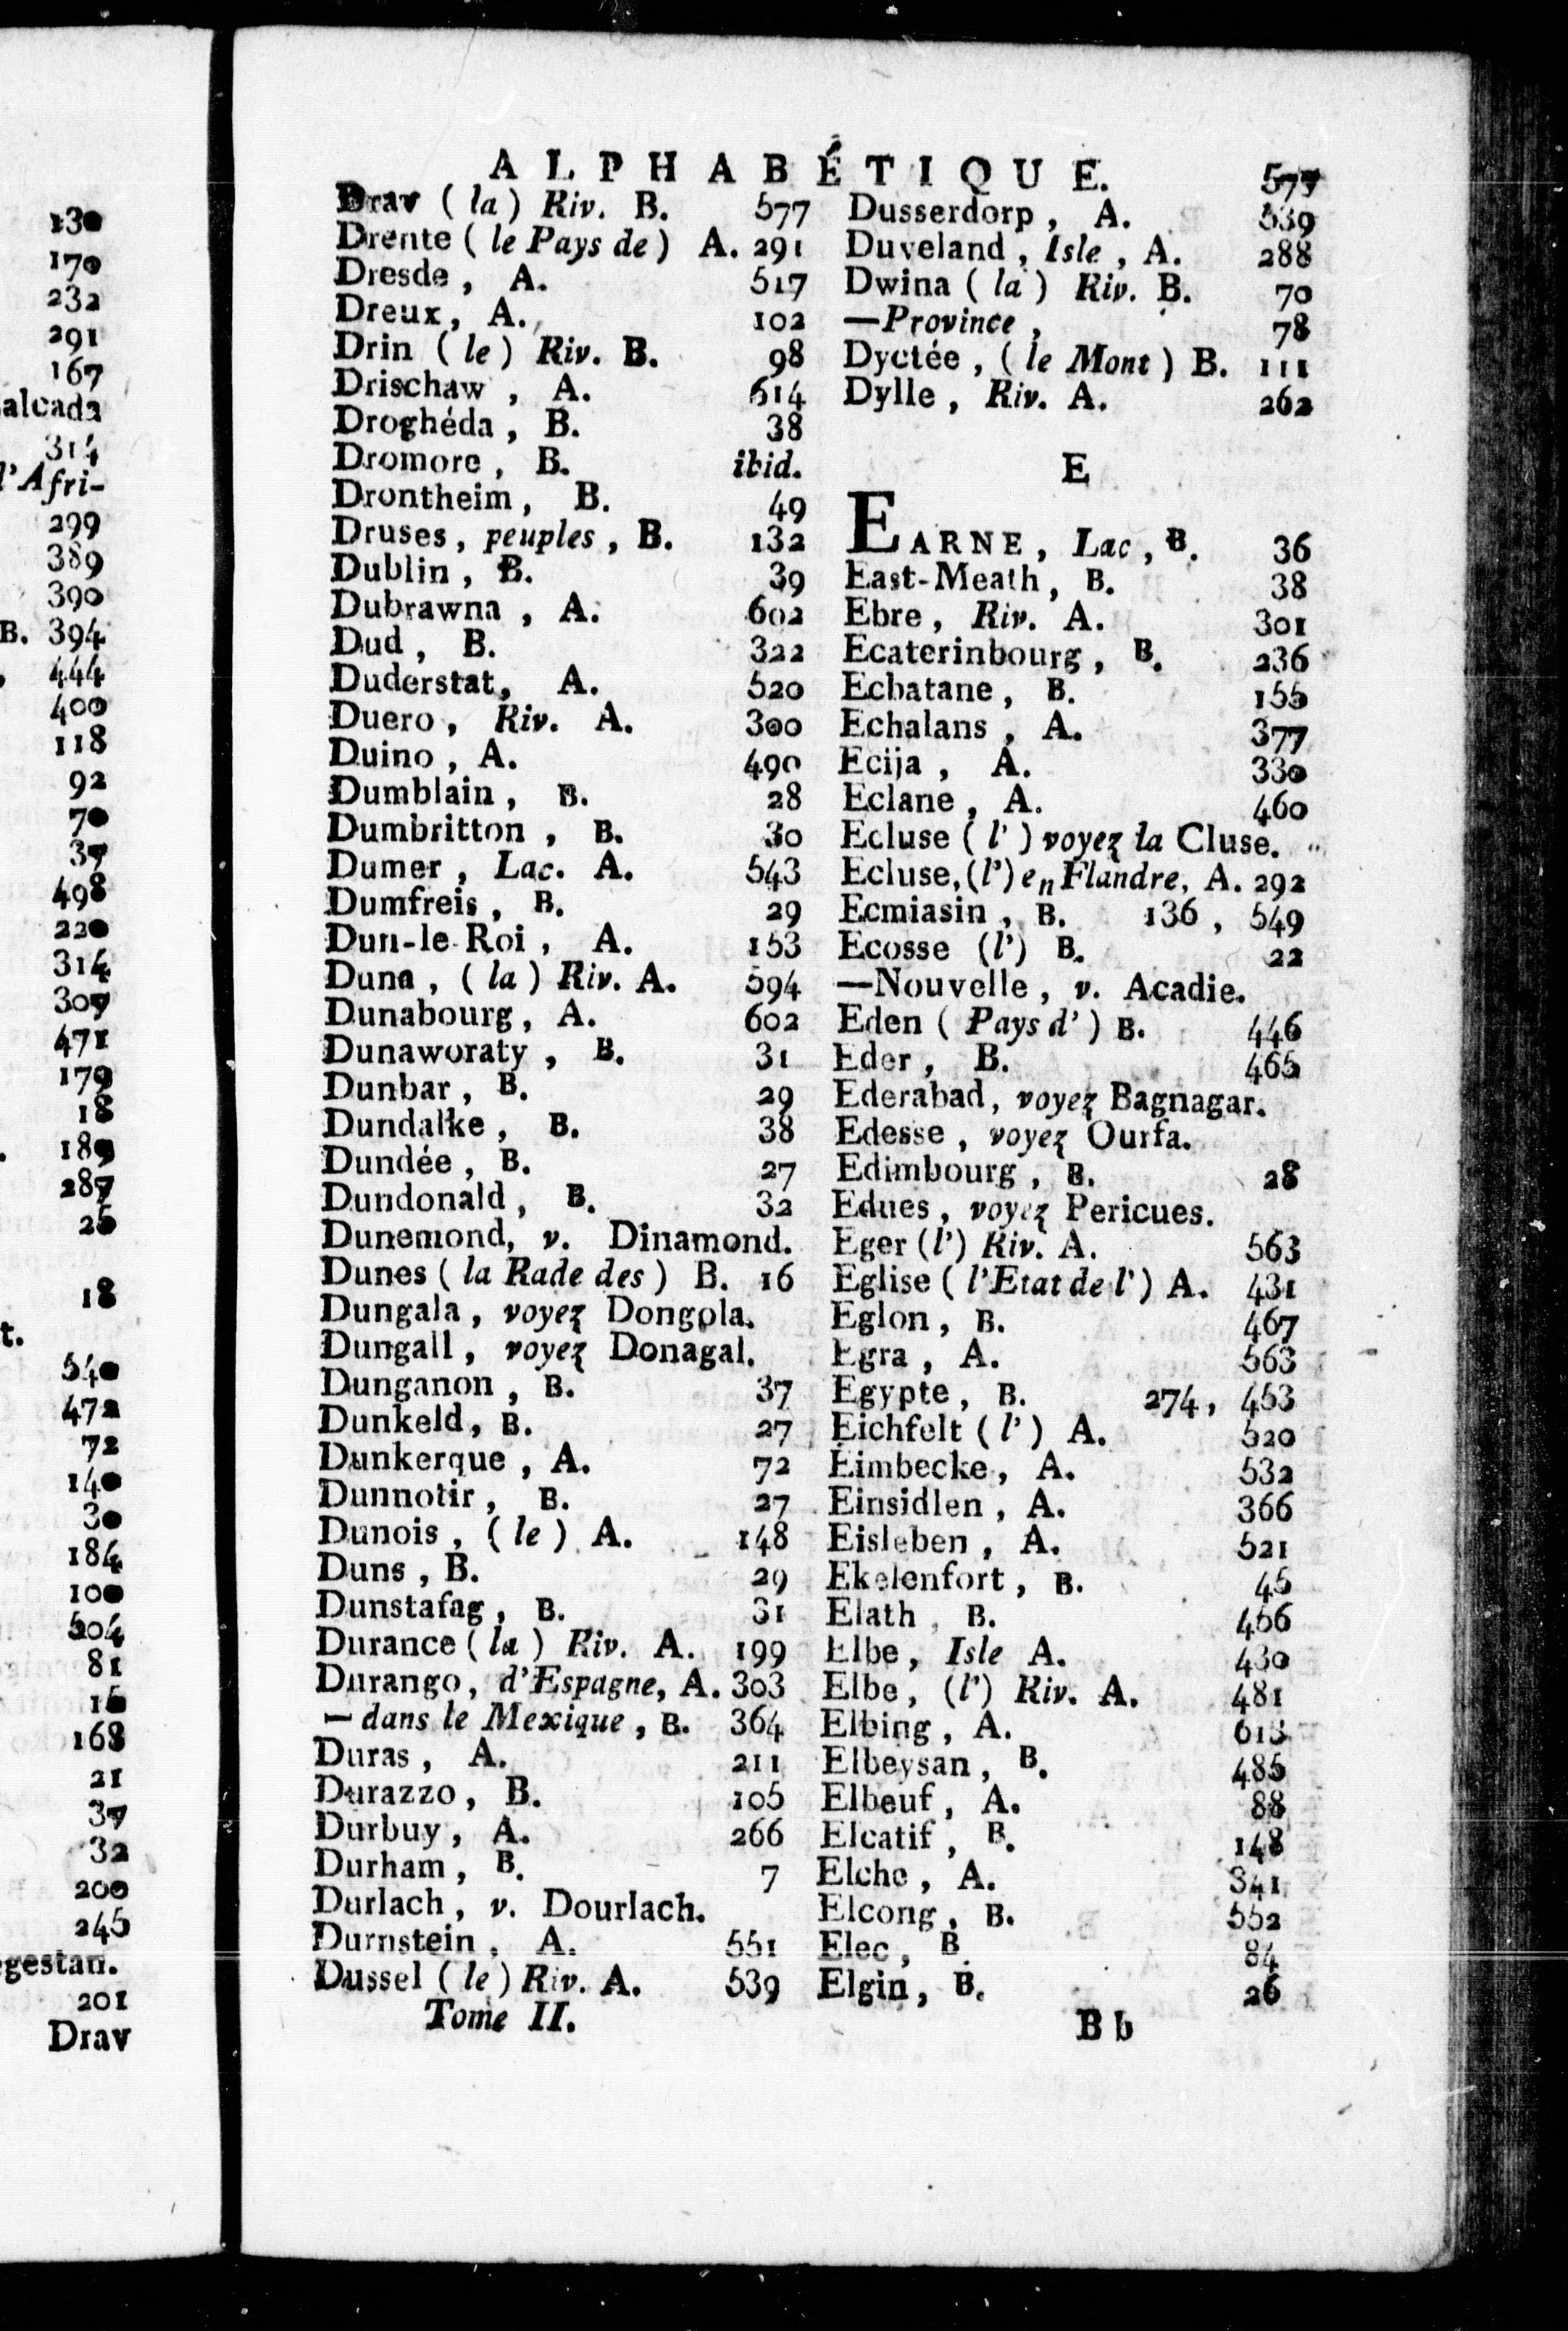 130
170
232
291
167
alcada
314
l'Afri-
299
389
390
B. 394
444
400
118
92
70
37
498
220
314
307
471
179
18
189
287
25
18
t.
540
472
72
140
30
184
100
504
81
15
168
21
37
32
200
245
gestan.
201
Drav
ALPHABÉTIQUE. 577
Drav ( la ) Riv. B. 577
Drente ( le Pays de ) A. 291
Dresde , A. 517
Dreux , A. 102
Drin ( le ) Riv. B. 98
Drischaw , A. 614
Droghéda , B. 38
Dromore , B. ibid.
Drontheim , B. 49
Druses , peuples , B. 132
Dublin , B. 39
Dubrawna , A. 602
Dud , B. 322
Duderstat, A. 520
Duero , Riv. A. 300
Duino , A. 490
Dumblain , B. 28
Dumbritton , B. 30
Dumer , Lac. A. 543
Dumfreis , B. 29
Dun-le-Roi , A. 153
Duna , ( la ) Riv. A. 594
Dunabourg , A. 602
Dunaworaty , B. 31
Dunbar , B. 29
Dundalke , B. 38
Dundée , B. 27
Dundonald , B. 32
Dunemond, v. Dinamond.
Dunes ( la Rade des ) B. 16
Dungala , voyez Dongola.
Dungall , voyez Donagal.
Dunganon , B. 37
Dunkeld , B. 27
Dunkerque , A. 72
Dunnotir , B. 27
Dunois , ( le ) A. 148
Duns , B. 29
Dunstafag , B. 31
Durance ( la ) Riv. A. 199
Durango, d'Espagne, A. 303
— dans le Mexique , B. 364
Duras , A. 211
Durazzo , B. 105
Durbuy , A. 266
Durham , B. 7
Durlach , v. Dourlach.
Durnstein , A. 551
Dussel ( le ) Riv. A. 539
Tome II.
Dusserdorp , A. 539
Duveland , Isle , A. 288
Dwina ( la ) Riv. B. 70
—Province , 78
Dyctée , ( le Mont ) B. 111
Dylle , Riv. A. 262
E
EARNE, Lac, B. 36
East-Meath, B. 38
Ebre , Riv. A. 301
Ecaterinbourg , B. 236
Ecbatane , B. 155
Echalans , A. 377
Ecija , A. 330
Eclane , A. 460
Ecluse ( l' ) voyez la Cluse.
Ecluse, (l') en Flandre, A. 292
Ecmiasin , B. 136 , 549
Ecosse (l') B. 22
—Nouvelle , v. Acadie.
Eden ( Pays d' ) B. 446
Eder , B. 465
Ederabad, voyez Bagnagar.
Edesse , voyez Ourfa.
Edimbourg , B. 28
Edues , voyez Pericues.
Eger (l') Riv. A. 563
Eglise ( l'Etat de l' ) A. 431
Eglon , B. 467
Egra , A. 563
Egypte , B. 274, 453
Eichfelt ( l' ) A. 520
Eimbecke , A. 532
Einsidlen , A. 366
Eisleben , A. 521
Ekelenfort , B. 45
Elath , B. 466
Elbe, Isle A. 430
Elbe, (l') Riv. A. 481
Elbing , A. 613
Elbeysan , B. 485
Elbeuf , A. 88
Elcatif , B. 148
Elche , A. 341
Elcong , B. 552
Elec , B 84
Elgin , B. 26
B b